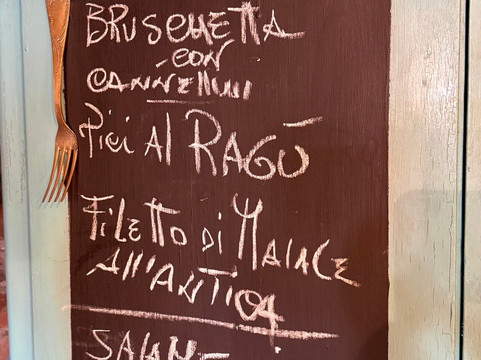 BRUSCHETTA
CON
CANNELLINI
Pici Al RAGÙ
FiLETTO Di MAIALE
All'ANTICA